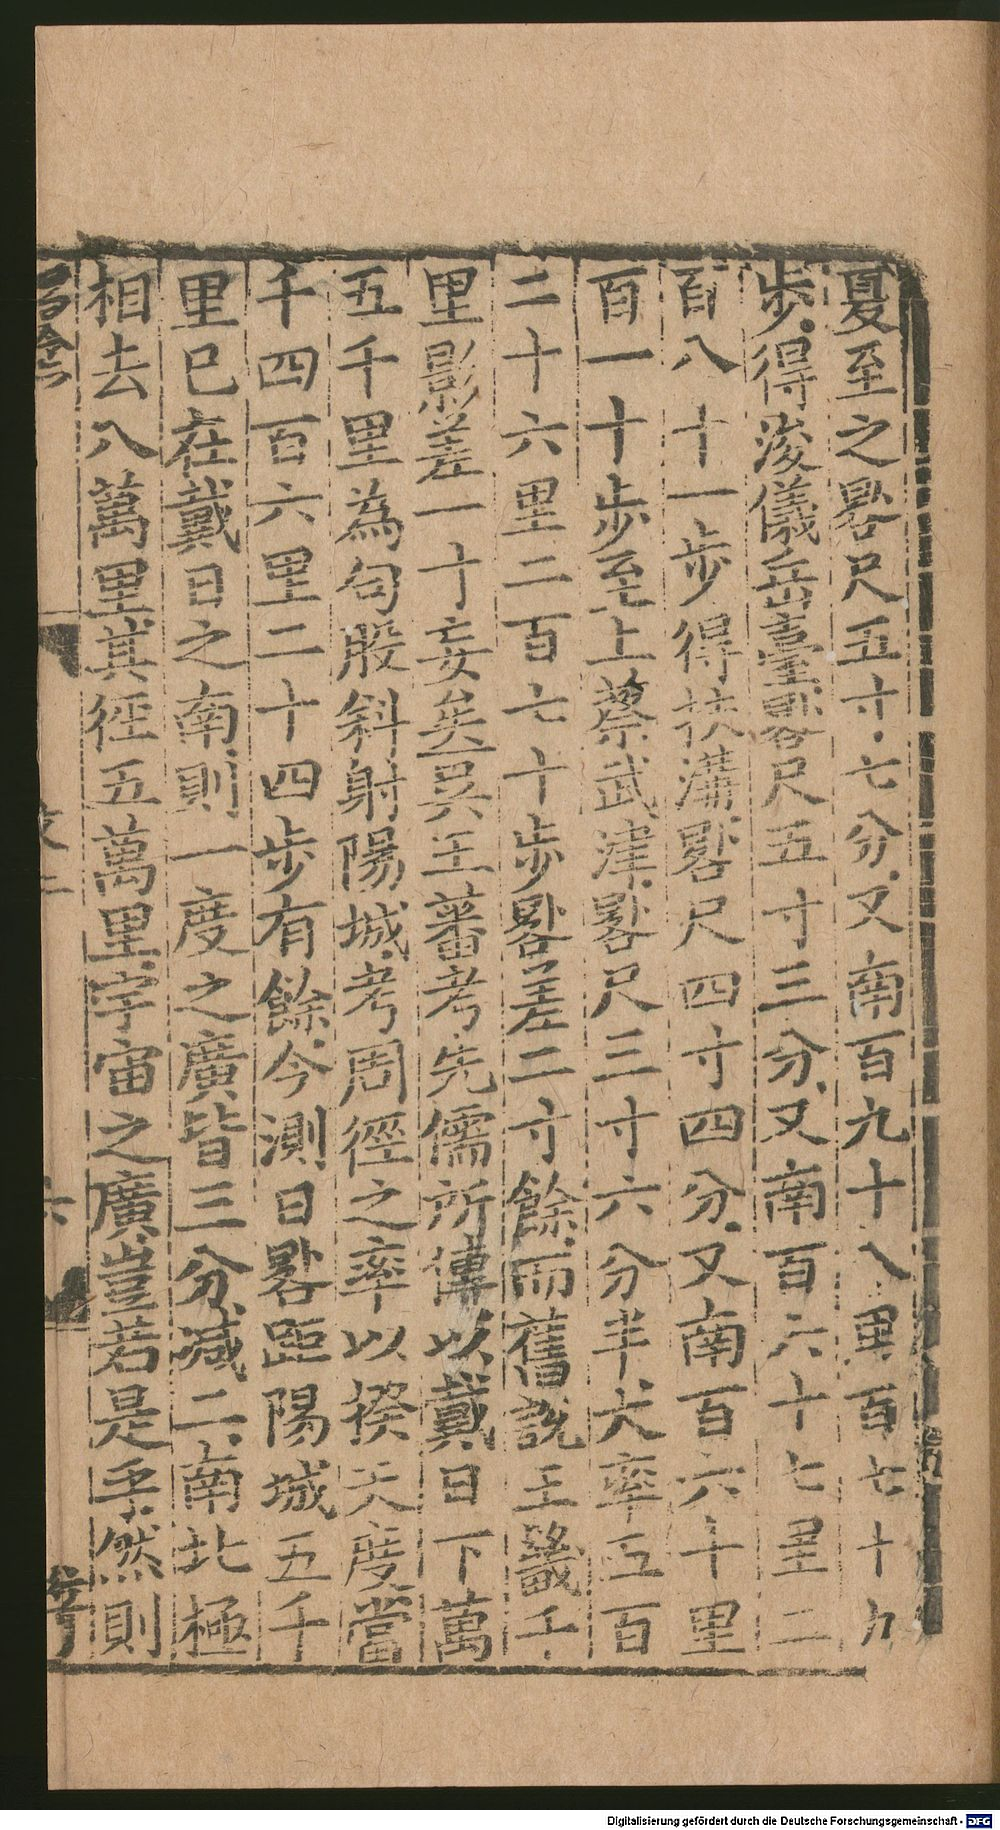 夏至之晷尺五寸七分又南百九十八里百七十九
步得浚儀岳臺晷尺五寸三分又南百六十七里二
百八十一步得扶溝晷尺四寸四分又南百六十里
百一十步至上蔡武津晷尺三寸六分半大率五百
二十六里二百七十步晷差二寸餘而舊說王畿千
里影差一寸妄矣吳王蕃考先儒所傳以戴日下萬
五千里為句股斜射陽城考周徑之率以揆天度當
千四百六里二十四步有餘今測日晷距陽城五千
里已在戴日之南則一度之廣皆三分減二南北極
相去八萬里其徑五萬里宇宙之廣豈若是乎然則
Digitalisierung gefördert durch die Deutsche Forschungsgemeinschaft - DFG